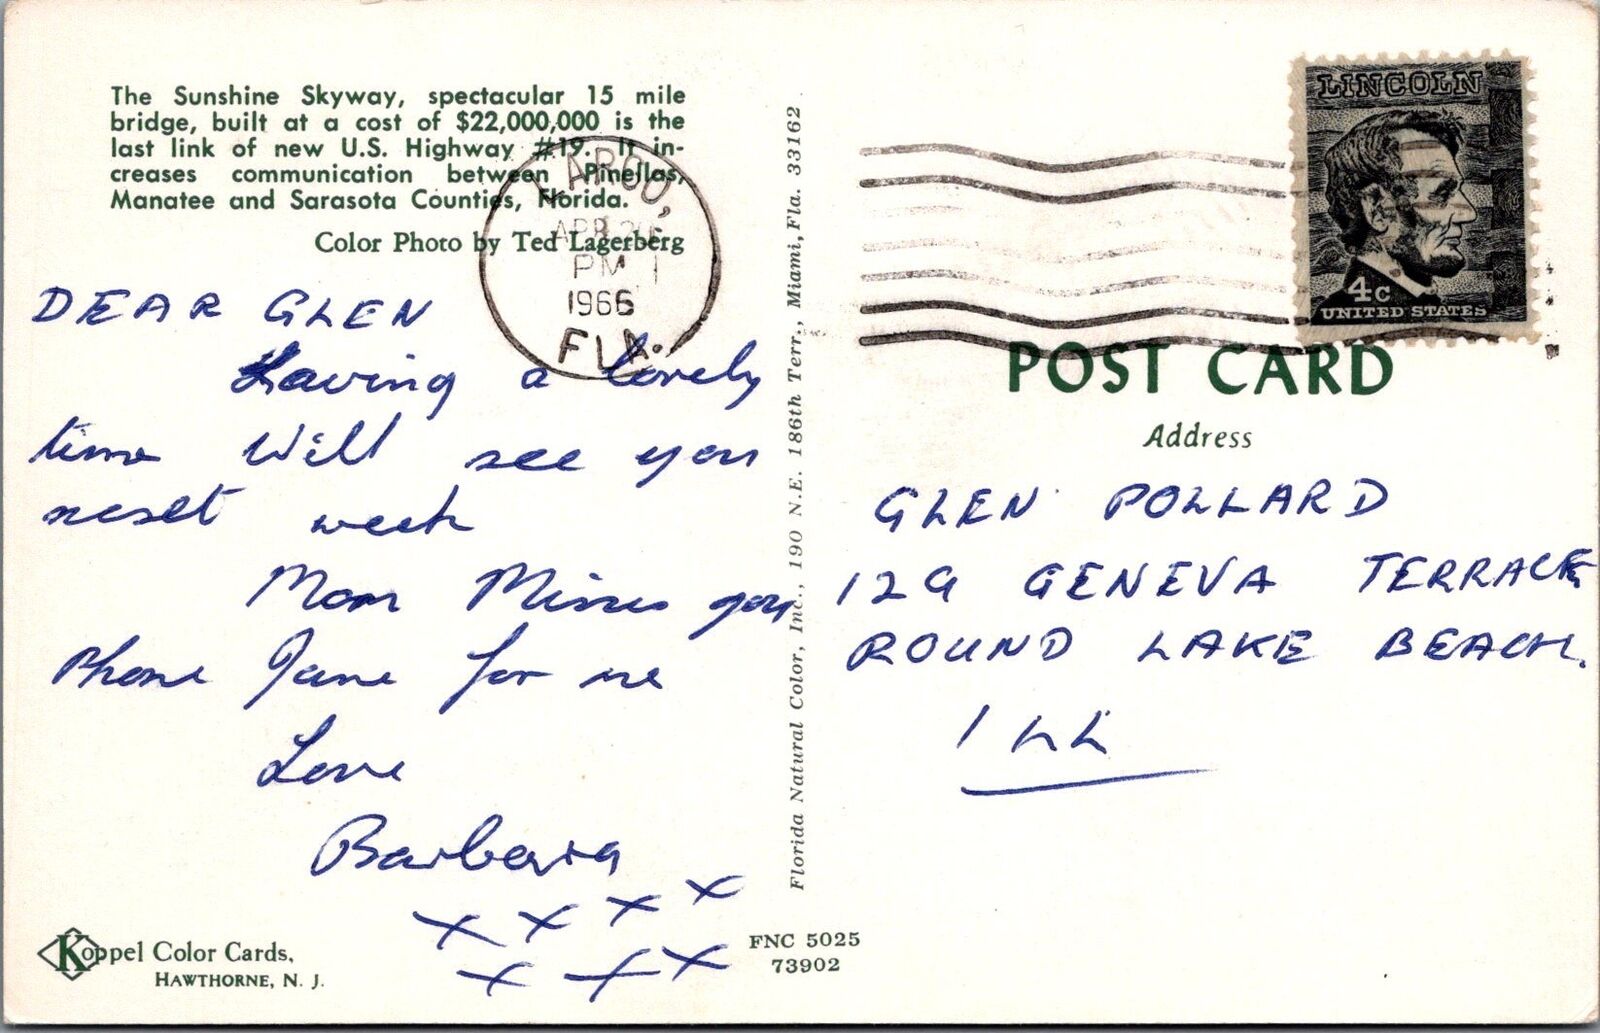 The Sunshine Skyway, spectacular 15 mile
bridge, built at a cost of $22,000,000 is the
last link of new U.S. Highway #19. It in-
creases communication between Pinellas,
Manatee and Sarasota Counties, Florida.
Color Photo by Ted Lagerberg
LARGO,
APR 20
PM
1966
FLA.
DEAR GLEN
Having a lovely
time Will see you
next week
Mom Misses you
Phone Jane for me
Love
Barbara
x x x x
x x x
Koppel Color Cards,
HAWTHORNE, N. J.
Florida Natural Color, Inc., 190 N.E. 186th Terr., Miami, Fla. 33162
FNC 5025
73902
LINCOLN
4c
UNITED STATES
POST CARD
Address
GLEN POLLARD
129 GENEVA TERRACE
ROUND LAKE BEACH.
ILL